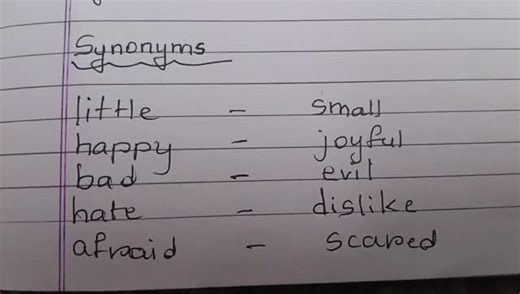 Synonyms
little - small
happy - joyful
bad - evil
hate - dislike
afraid - scared